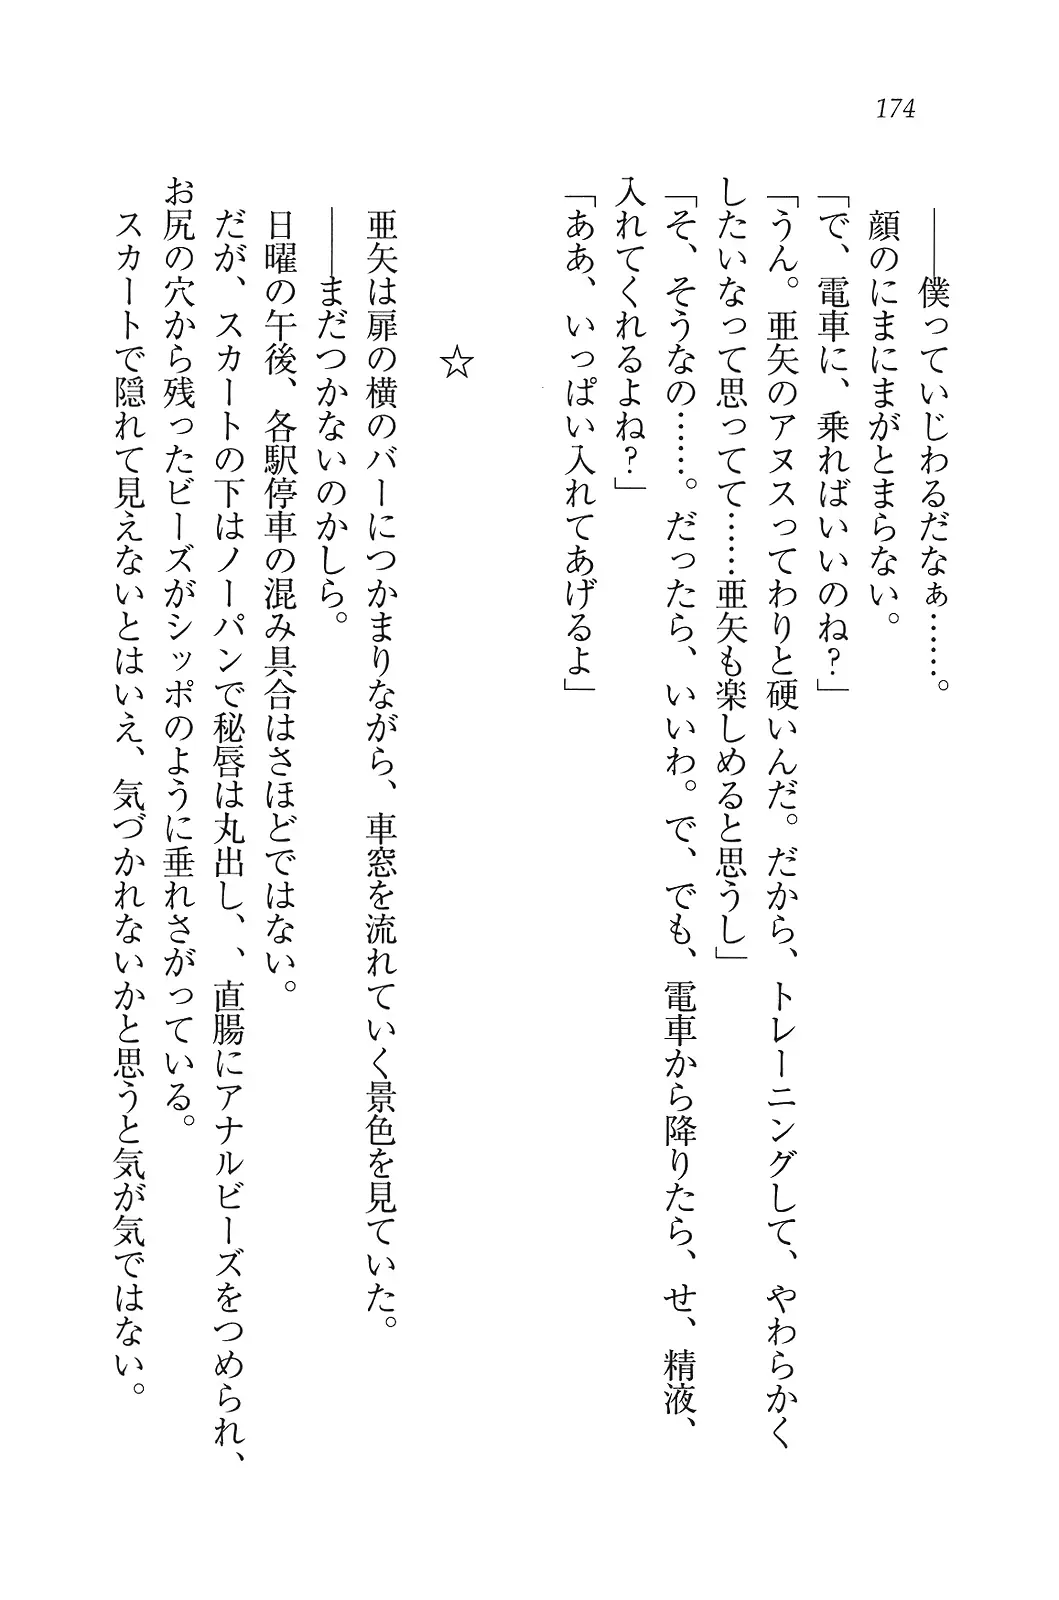 174
――僕っていじわるだなぁ……。
顔のにまにまがとまらない。
「で、電車に、乗ればいいのね?」
「うん。亜矢のアヌスってわりと硬いんだ。だから、トレーニングして、やわらかく
したいなって思ってて……亜矢も楽しめると思うし」
「そ、そうなの……。だったら、いいわ。で、でも、電車から降りたら、せ、精液、
入れてくれるよね?」
「ああ、いっぱい入れてあげるよ」
☆
亜矢は扉の横のバーにつかまりながら、車窓を流れていく景色を見ていた。
――まだつかないのかしら。
日曜の午後、各駅停車の混み具合はさほどではない。
だが、スカートの下はノーパンで秘唇は丸出し、、直腸にアナルビーズをつめられ、
お尻の穴から残ったビーズがシッポのように垂れさがっている。
スカートで隠れて見えないとはいえ、気づかれないかと思うと気が気ではない。